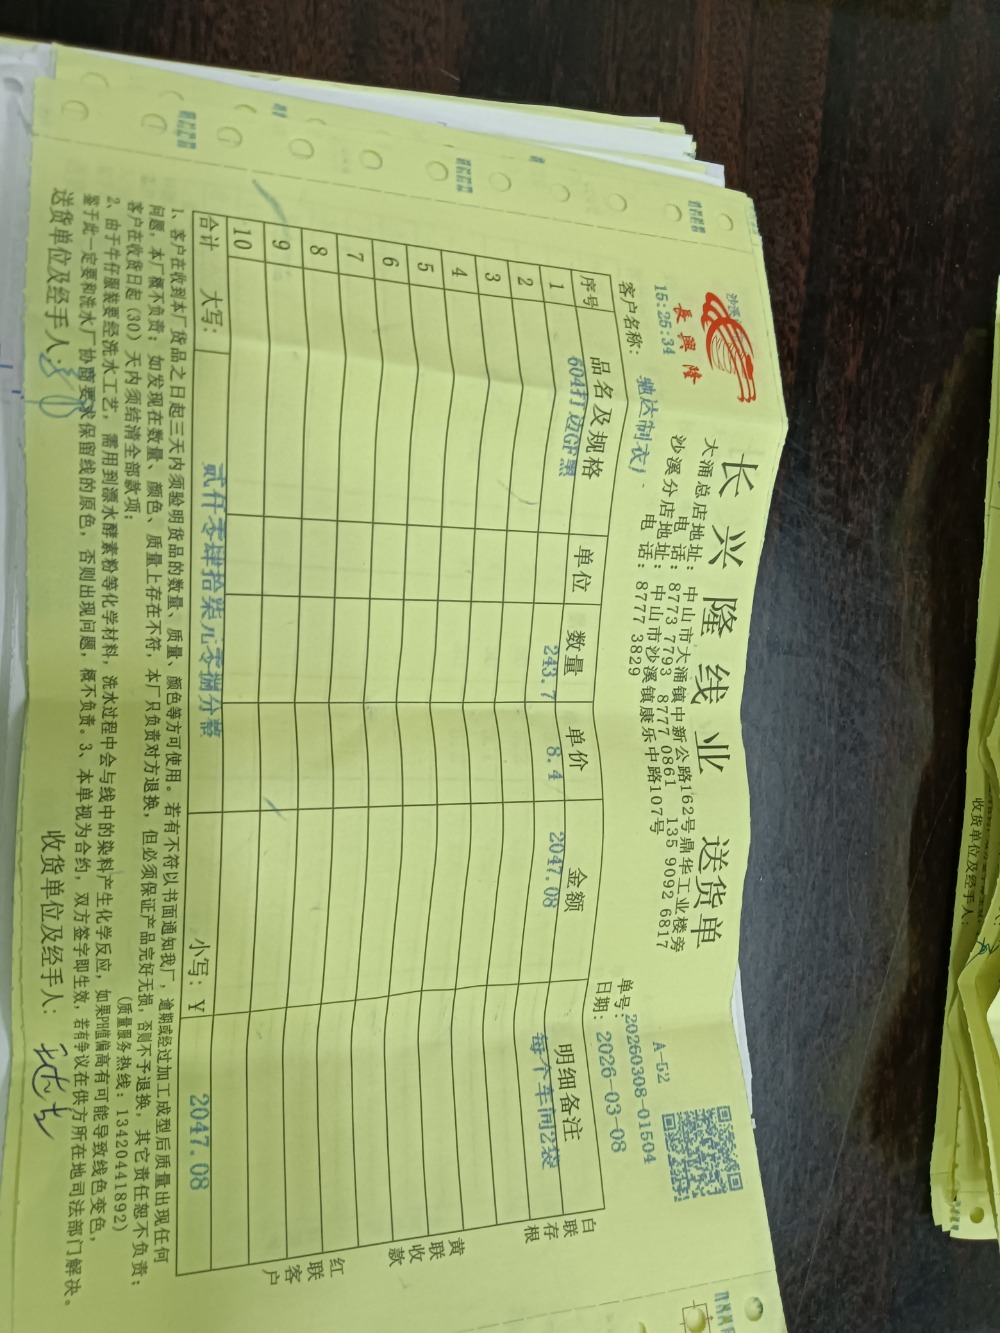 沙溪
長興隆
长兴隆线业 送货单
大涌总店地址: 中山市大涌镇中新公路162号鼎华工业楼旁
电话: 8773 7793 8777 0861 135 9092 6817
沙溪分店地址: 中山市沙溪镇康乐中路107号
电话: 8777 3829
A-52
15:25:34
单号: 20260308-01504
客户名称: 驰达制衣厂
日期: 2026-03-08
序号 品名及规格 单位 数量 单价 金额 明细备注
1 604打边GF黑 243.7 8.4 2047.08 每个车间2袋
2
3
4
5
6
7
8
9
10
合计 大写: 贰仟零肆拾柒元零捌分整 小写: ¥ 2047.08
白联存根
黄联收款
红联客户
1、客户在收到本厂货品之日起三天内须验明货品的数量、质量、颜色等方可使用。若有不符以书面通知我厂，逾期或经过加工成型后质量出现任何
问题，本厂概不负责；如发现在数量、颜色、质量上存在不符，本厂只负责对方退换，但必须保证产品完好无损，否则不予退换，其它责任恕不负责；
客户在收货日起(30)天内须结清全部款项； (质量服务热线: 13420441892)
2、由于牛仔服装要经洗水工艺，需用到漂水酵素粉等化学材料，洗水过程中会与线中的染料产生化学反应，如果PH值偏高有可能导致线色变色，
鉴于此一定要和洗水厂协商要求保留线的原色，否则出现问题，概不负责。3、本单视为合约，双方签字即生效，若有争议在供方所在地司法部门解决。
送货单位及经手人: 收货单位及经手人:
收货单位及经手人: